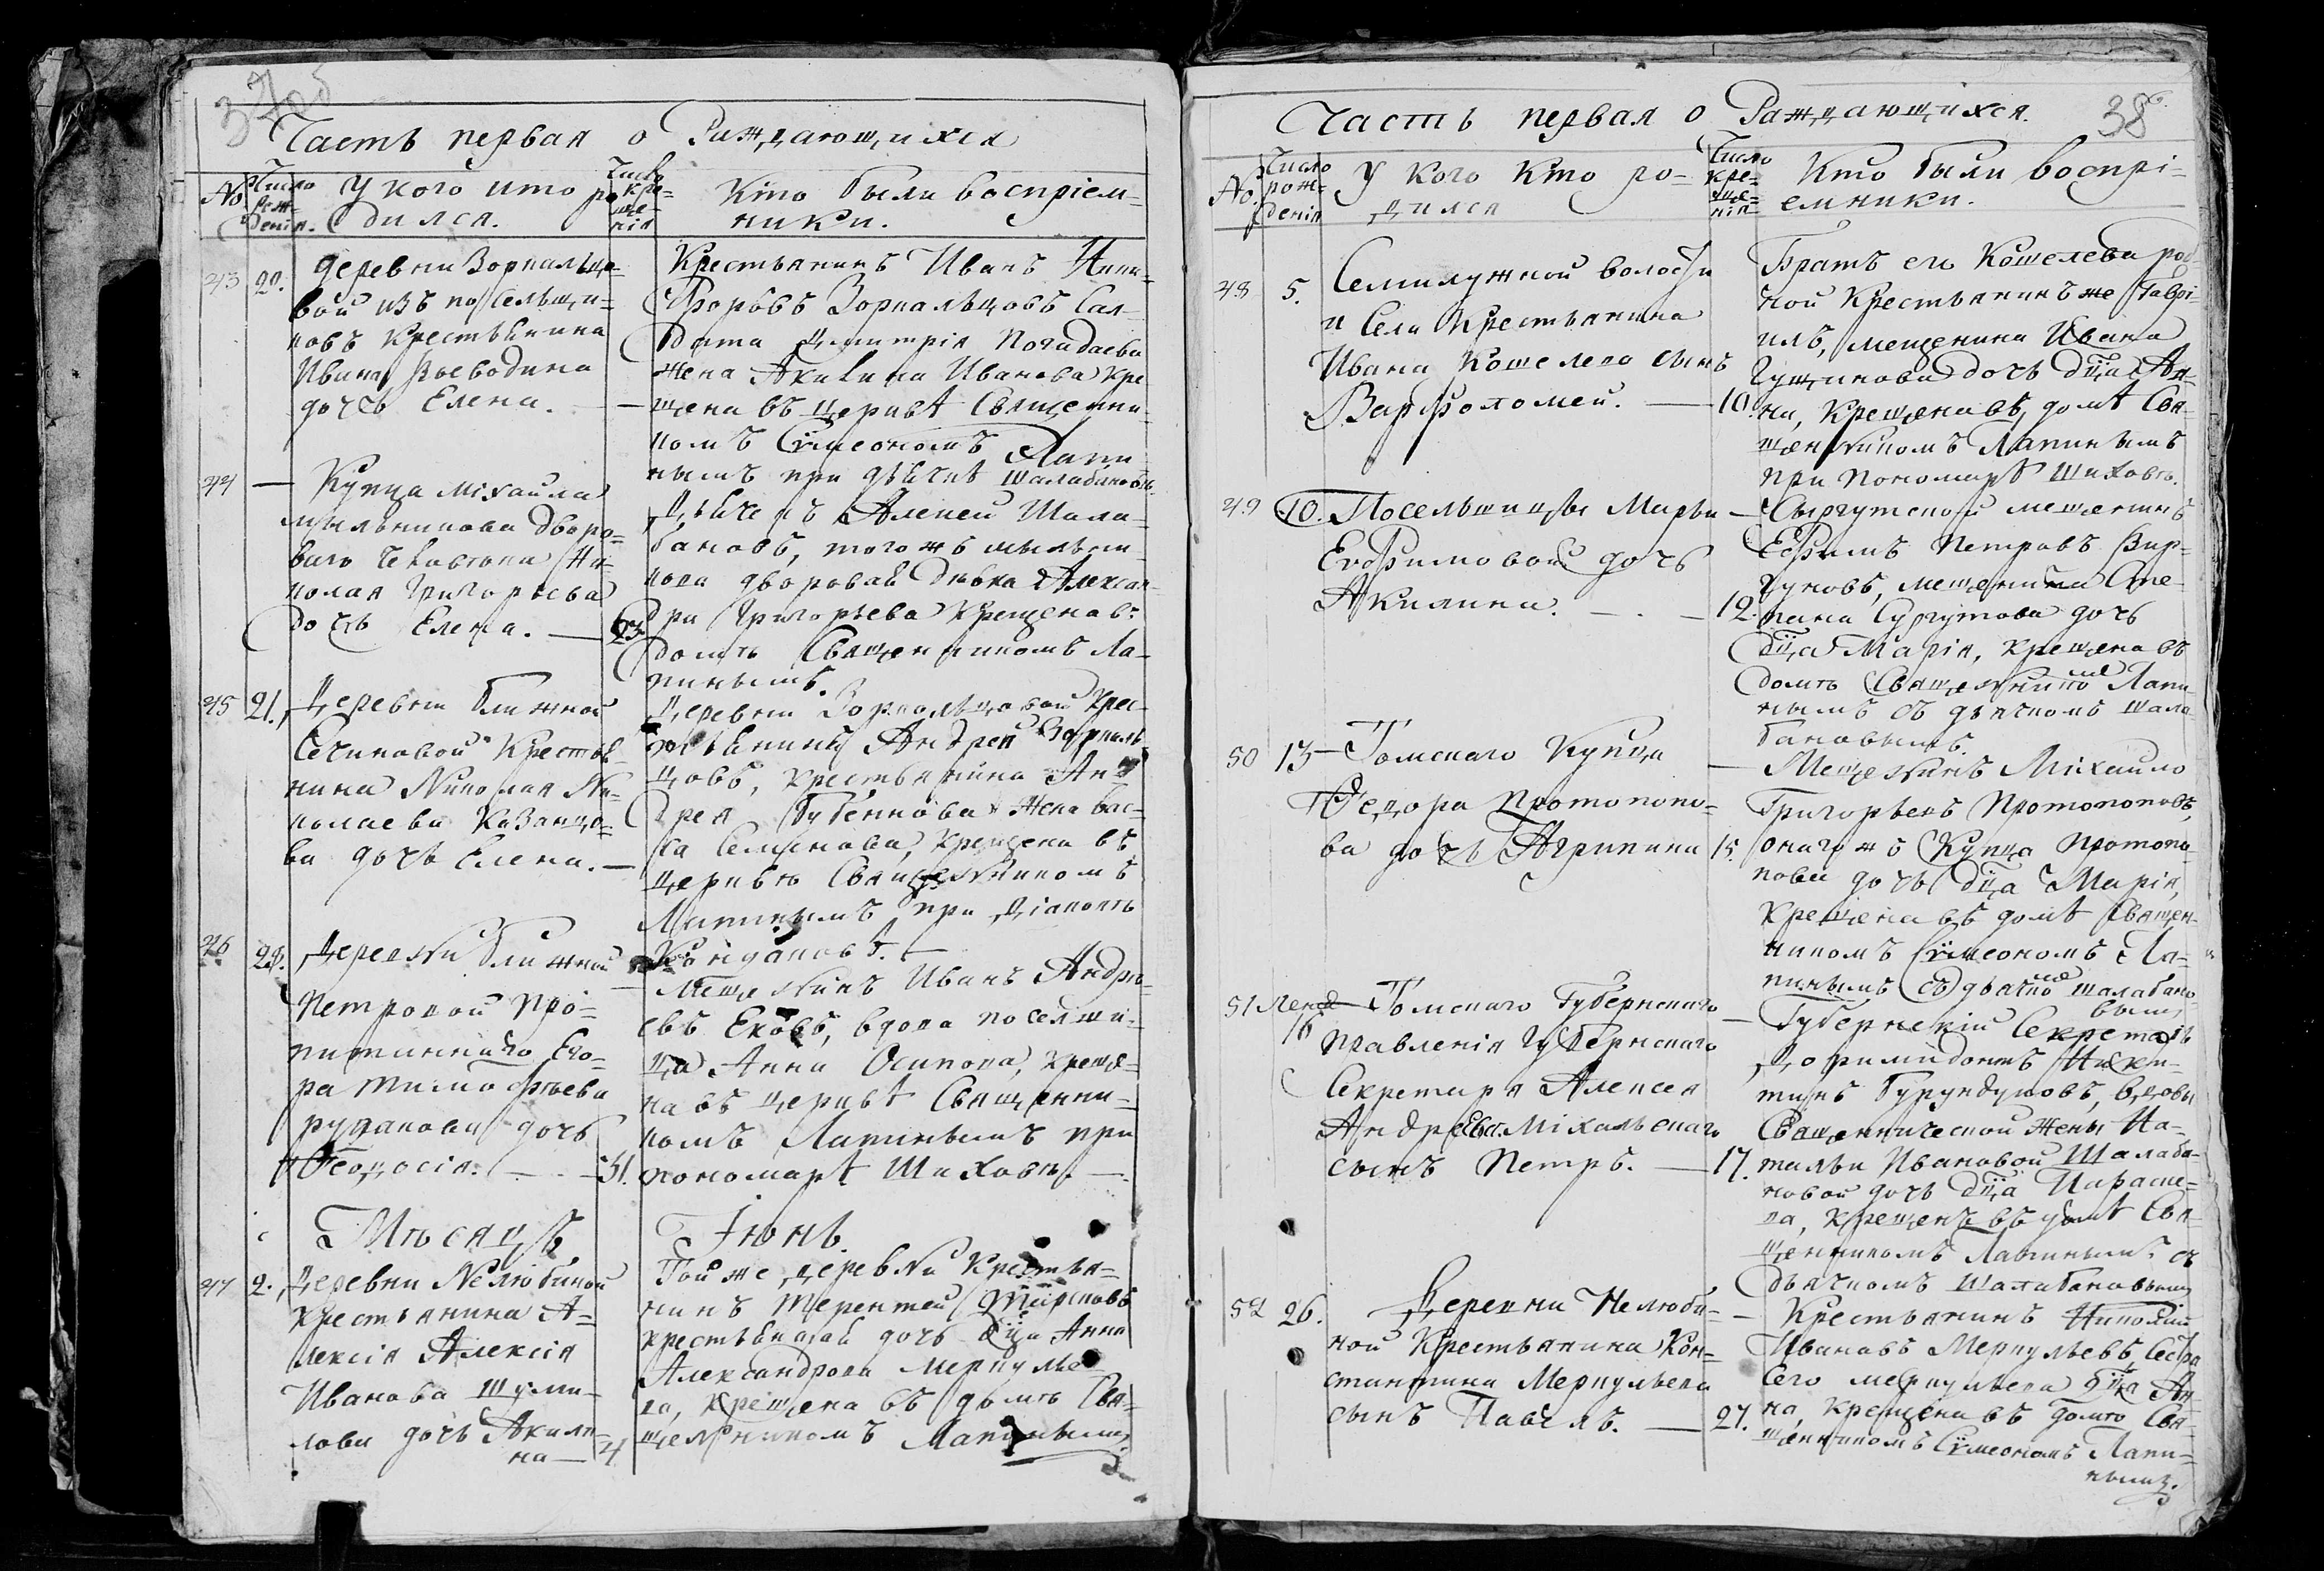 37об
Часть первая о Раждающихся
No
Число рож-
денія.
У кого кто ро
дился.
Число
кре-
ще-
нія
Кто были воспріем-
ники.
43
20.
деревни Воркальце-
вой изъ посельщи-
ковъ крестьянина
Ивана Воеводина
дочь Елена. —
Крестьянинъ Иванъ Ники-
форовъ Воркальцовъ Сал-
дата Дмитрія Погадаева
жена Акилина Иванова кре
— щена въ церквѣ Священни-
комъ Сѵмеономъ Лапи-
нымъ при дьячкѣ Шалабановѣ.
44 —
Купца Михайла
мыльникова дворо-
ваго человека Ни-
колая Григорьева
дочь Елена. — 23.
Дьячекъ Алексей Шала-
бановъ, того жъ мыльни-
кова дворовая девка Алексан-
дра Григорьева крещена въ
доме Священникомъ Ла-
пинымъ.
45 21.
Деревни ближней
Сечиновой Крестья-
нина Николая Ни-
колаева Казанцо-
ва дочь Елена. —
Деревни Воркальцовой крес-
тьянинъ Андрей Воркаль-
цовъ, крестьянина Ан-
дрея Губенкова жена Вас-
са Семенова, крещена въ
церквѣ Священникомъ
Лапинымъ при Діаконѣ
Кондаковѣ. —
46 28.
Деревни ближней
Петровой про-
питаннаго Его-
ра Тимофеева
рупакова дочь
Феодосія. — 31.
— Мещенинъ Иванъ Андре-
евъ Еновъ, вдова поселщи-
ца Анна Осипова, креще-
на въ церквѣ Священни-
комъ Лапинымъ при
пономарѣ Шиховѣ. —
Месяцъ Іюнь.
47 2.
Деревни Нелюбиной
крестьянина А-
лексія Алексія
Иванова Шуми-
лова дочь Акили-
на — 4
Той же деревни Крестья-
нинъ Терентей
крестьянская дочь дѣца Анна
Александрова Меркулье-
ва, крещена въ доме Свя-
щенникомъ Лапинымъ
38
Часть первая о Раждающихся.
No.
Число
рож-
денія
У кого кто ро-
дился
Число
кре-
ще-
нія
Кто были воспрі-
емники.
48 5.
Семилужной волости
и Села Крестьянина
Ивана Кошелева сынъ
Варфоломей. — 10.
Братъ его Кошелева род-
ной Крестьянинъ же Гаврі-
илъ, мещенина Ивана
Гущинова дочь дѣца Ан-
на, крещена въ доме Свя-
щенникомъ Лапинымъ
при пономарѣ Шиховѣ.
49 10.
Посельшицы Марьи
Евфимовой дочь
Акилина. — 12.
— Сургутской мещенинъ
Ефимъ Петровъ Вир-
гуновъ, мещенина Сте-
пана Сургутова дочь
дѣца Марія, крещена въ
доме Священникомъ Лапи-
нымъ съ дьячкомъ Шала-
бановымъ.
50 13
— Томскаго Купца
Федора Протопопо-
ва дочь Агрипина 15.
— Мещенинъ Михайло
Григорьевъ Протопоповъ,
онаго жъ Купца Протопо-
пова дочь дѣца Марія,
крещена въ доме Священ-
никомъ Сѵмеономъ Ла-
пинымъ съ дьячкомъ Шалабано-
вымъ
51
16
— Томскаго Губернскаго
Правленія Губернскаго
Секретаря Алексея
Андреева Михальскаго
сынъ Петръ. — 17.
— Губернскій Секретарь
Доримидонтъ Ники-
тинъ Бурундуковъ, вдовы
Священнической жены На-
тальи Ивановой Шалаба-
новой дочь дѣца Параске-
ва, крещенъ въ доме Свя-
щенникомъ Лапинымъ съ
дьячкомъ Шалабановымъ
52 26.
Деревни Нелюби-
ной Крестьянина Кон-
стантина Меркульева
сынъ Павелъ. — 27.
— Крестьянинъ
Ивановъ Меркульевъ Сестра
Его Меркульева дѣца Ан-
на, крещенъ въ доме Свя-
щенникомъ Сѵмеономъ Лапи-
нымъ.